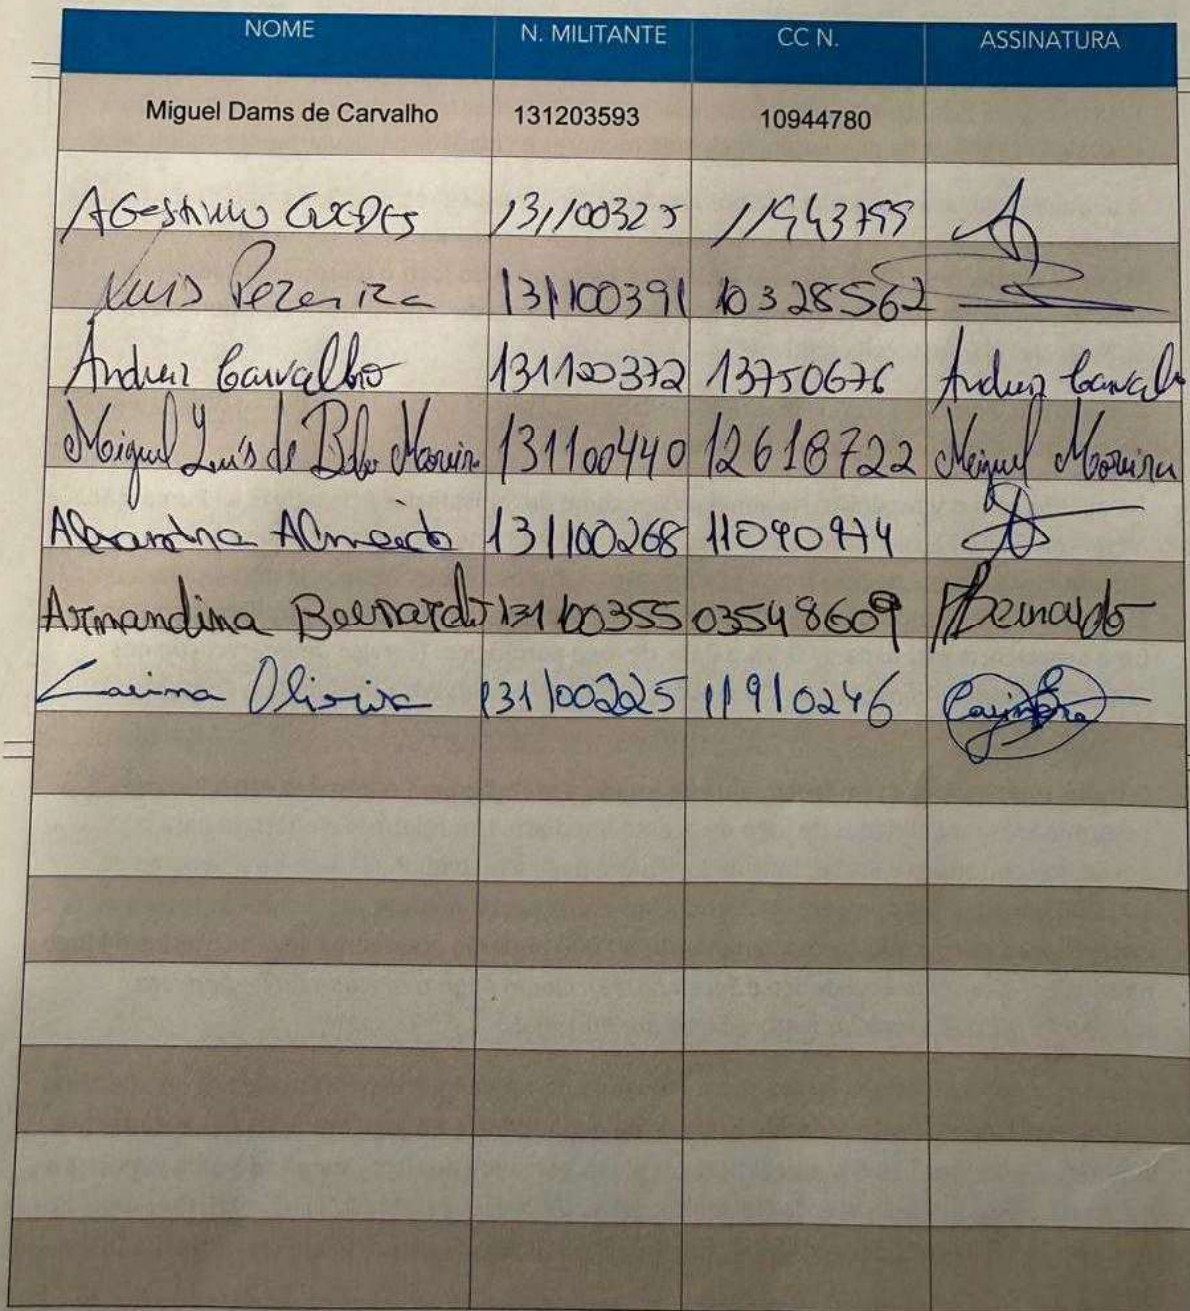 NOME N. MILITANTE CC N. ASSINATURA
Miguel Dams de Carvalho 131203593 10944780
131100325
Luis Pereira 131100391 10328562
Carvalho 131120372 13750676
Miguel Luís de Moreira 131100440 12618722 Miguel Moreira
Alexandrina Almeida 131100268
Armandina Bernardo 131100355 03548609 ABernardo
Carina Oliveira 131100225 11910246